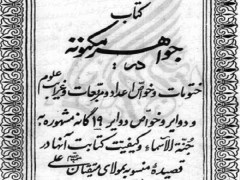 کتاب
جواهر مکنونه
در
ختومات و خواص اعداد و مربعات و غیرها علوم
و دوایر و خواص دوایر ۱۹ کانه مشهوره به
جنة الاسماء و کیفیت کتابت آنها در
قصیدهٔ منسوبه بمولای متقیان علی